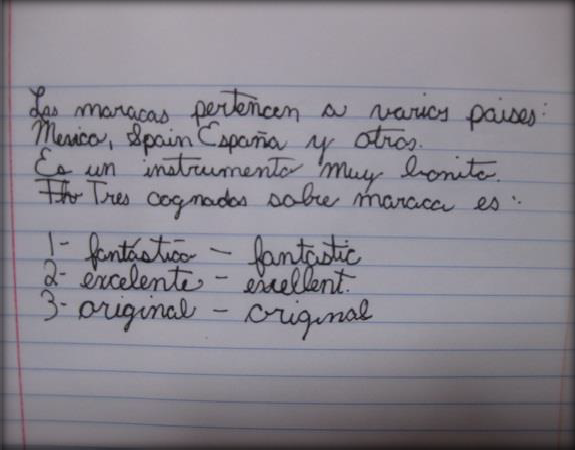 Las maracas pertencen a varios paises:
Mexico, Spain España y otros.
Es un instrumento muy bonito.
Thr Tres cognados sobre maraca es:
1- fantástico - fantastic
2- excelente - excellent.
3- original - original